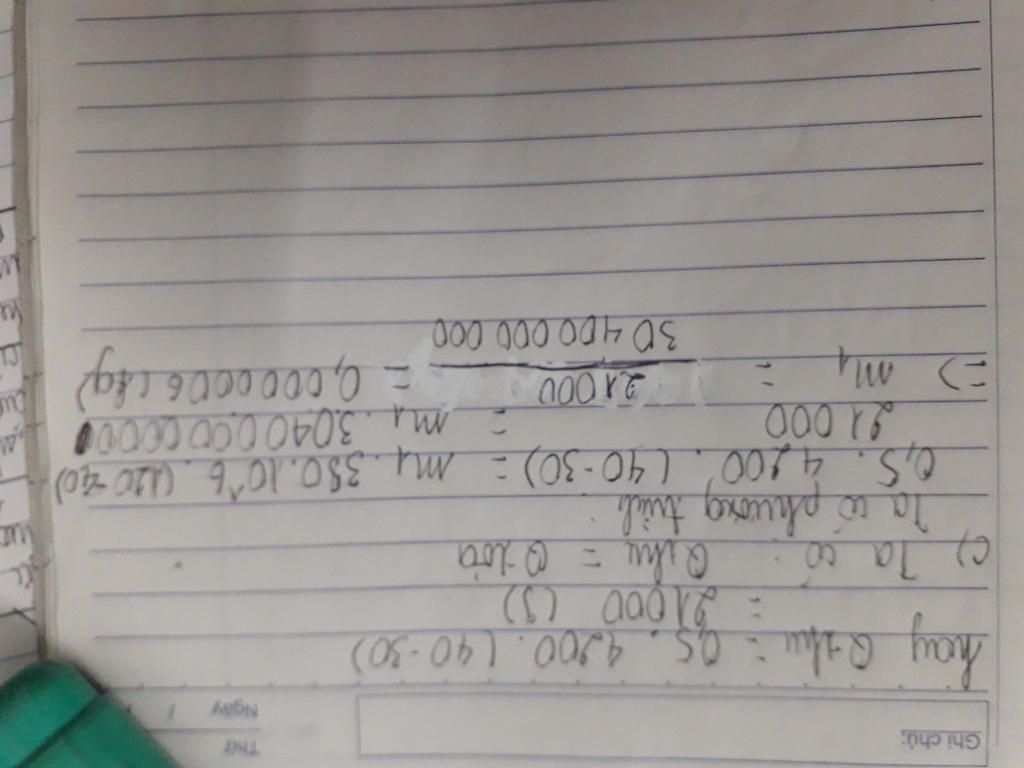 Ghi chú:
Thứ
Ngày /
hay Q thu = 0,5 . 4200 . (40-30)
= 21000 (J)
c) Ta có : Q thu = Q tỏa
Ta có phương trình :
0,5 . 4200 . (40-30) = m1 . 380.10^6 . (120-40)
21 000 = m1 . 30400000000
=> m1 = 21000 / 30 400 000 000 = 0,0000006 (kg)